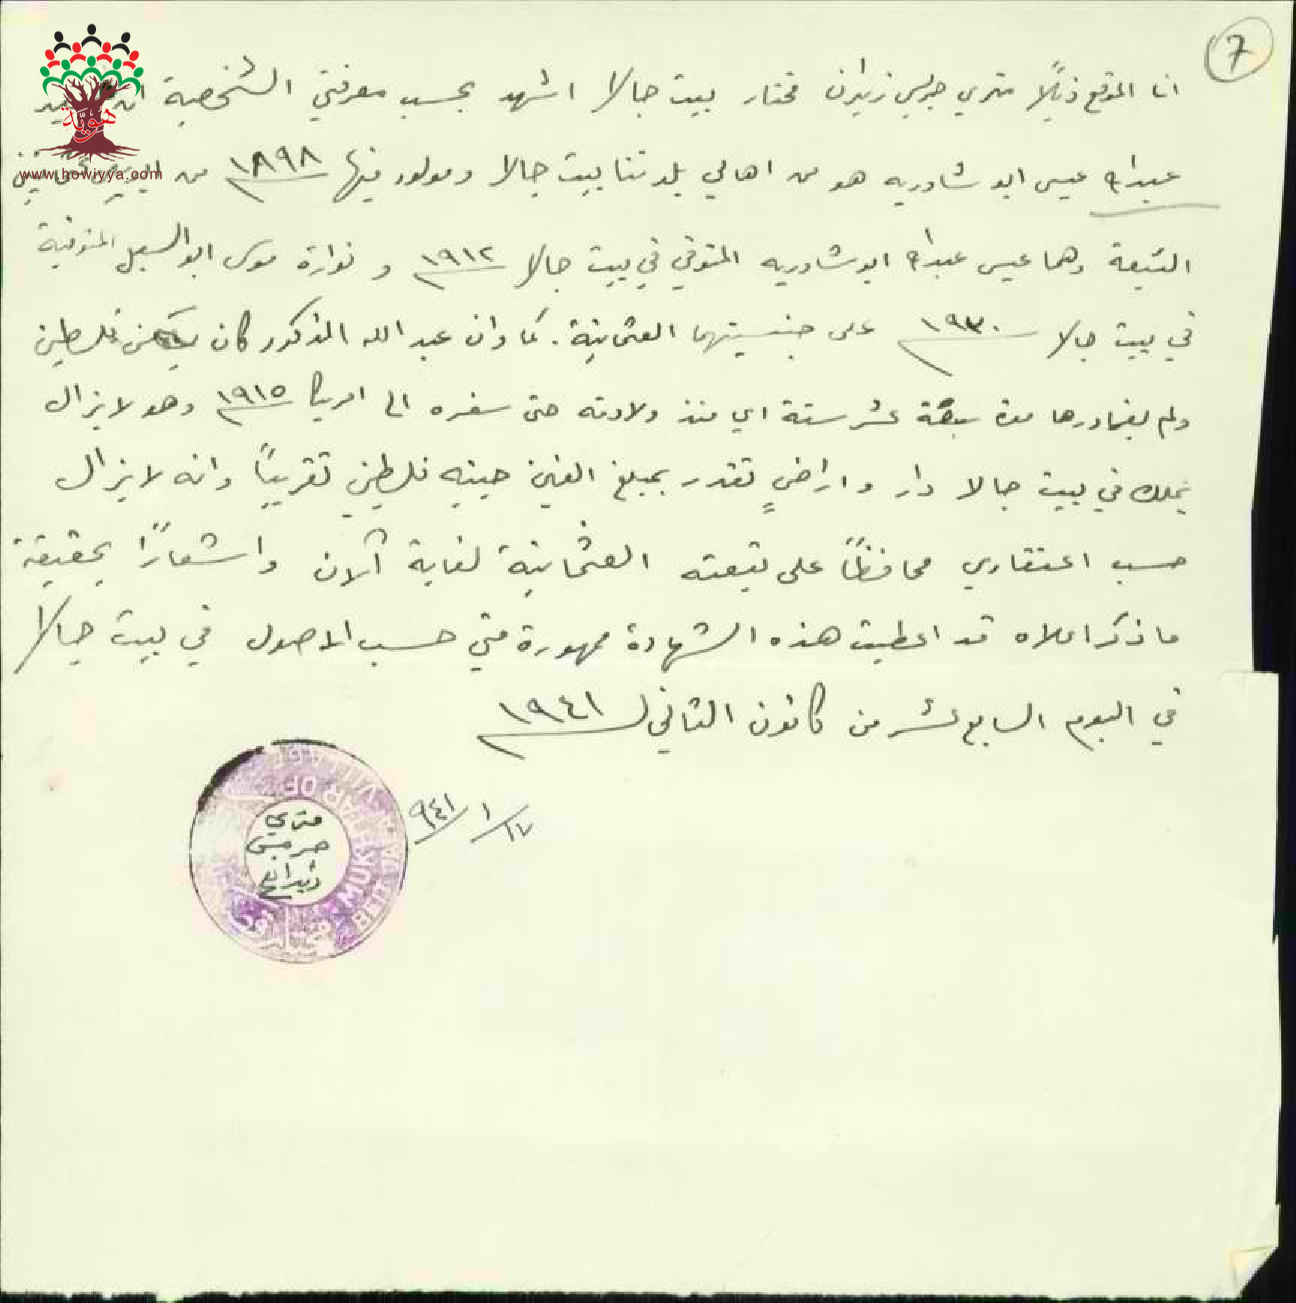 7
انا الموقع ذيلاً متري جريس زيدان مختار بيت جالا اشهد بحسب معرفتي الشخصية ان السيد
عبدالله عيسى ابو شاوريه هو من اهالي بلدتنا بيت جالا ومولود فيها ١٨٩٨ من
التبعة وهما عيسى عبدالله ابو شاوريه المتوفي في بيت جالا ١٩١٢ و نوارة موسى ابو السبل المتوفية
في بيت جالا ١٩٣٠ على جنسيتهما العثمانية. كما وان عبد الله المذكور كان يسكن فلسطين
ولم يغادرها مدة سبعة عشر سنة اي منذ ولادته حتى سفره الى امريكا ١٩١٥ وهو لا يزال
يملك في بيت جالا دار و اراضٍ تقدر بمبلغ الفين جنيه فلسطيني تقريباً وانه لا يزال
حسب اعتقادي محافظاً على تبعته العثمانية لغاية الآن واشعاراً بحقيقة
ما ذكر اعلاه قد اعطيت هذه الشهادة ممهورة مني حسب الاصول في بيت جالا
في اليوم السابع عشر من كانون الثاني ١٩٤١
١٧/١/٩٤١
متري
جريس
زيدان
MUKHTAR OF
VILLAGE
هويّة
www.howiyya.com